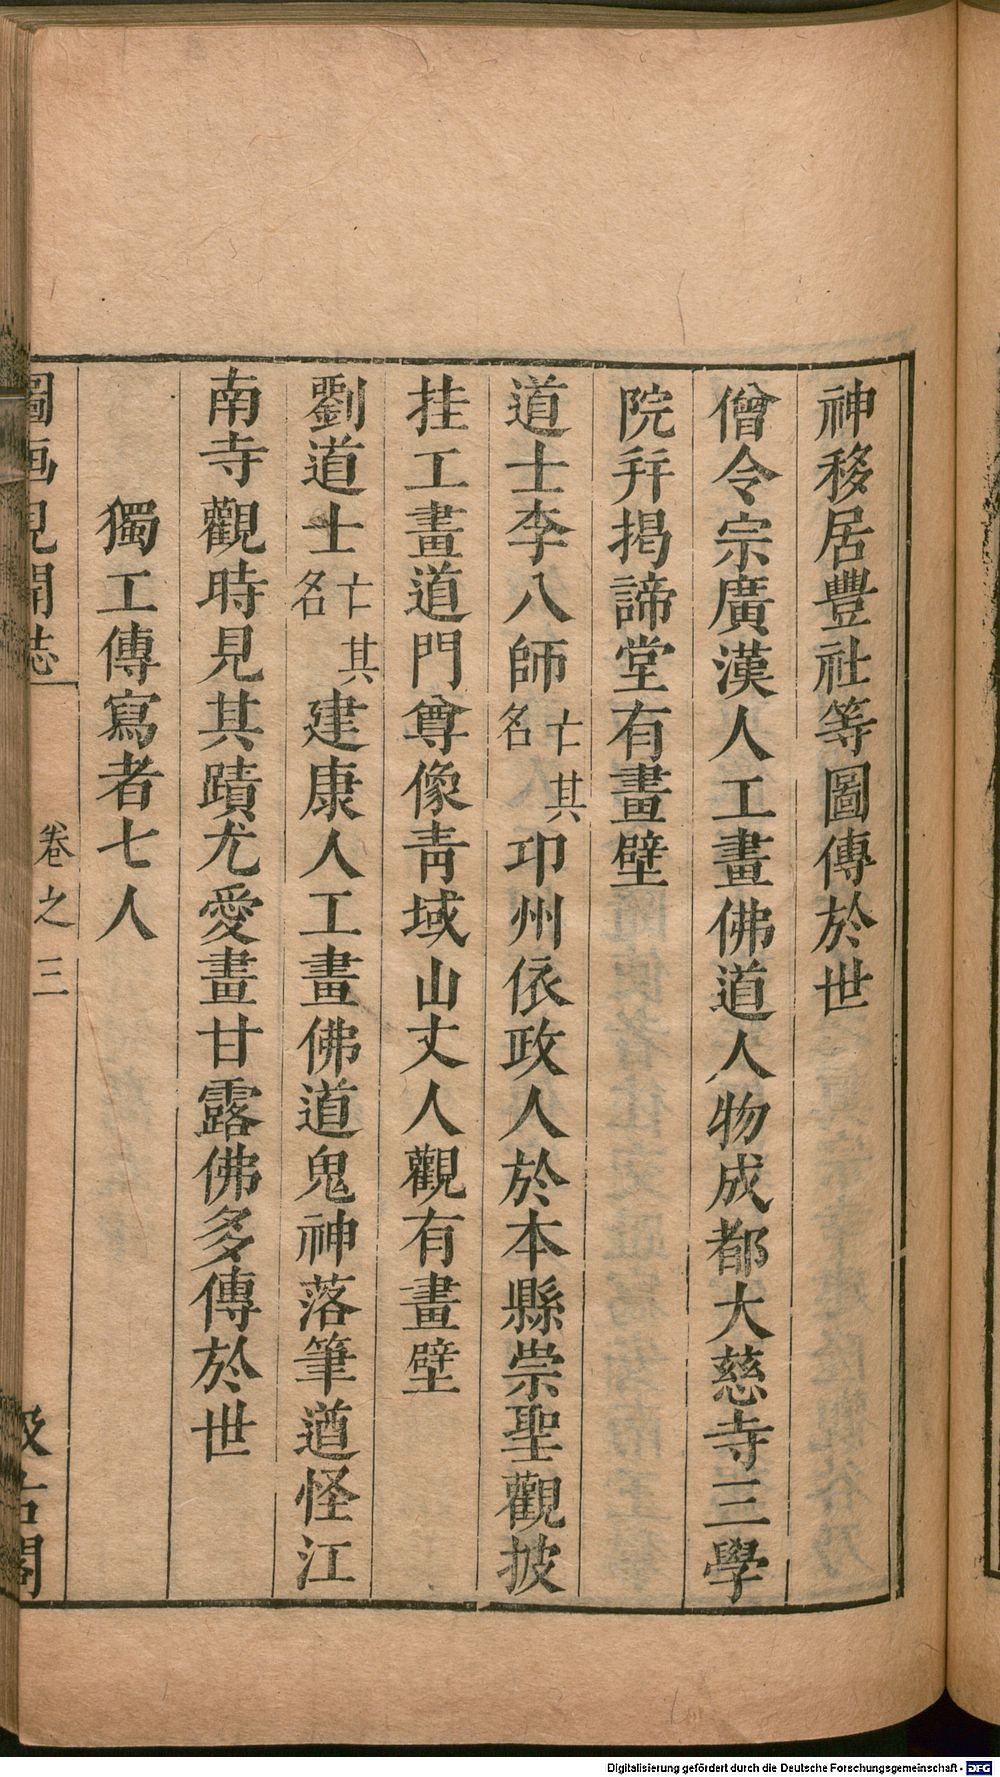 神移居豐社等圖傳於世
僧令宗廣漢人工畫佛道人物成都大慈寺三學
院幷揭諦堂有畫壁
道士李八師亡其名卭州依政人於本縣崇聖觀披
挂工畫道門尊像靑城山丈人觀有畫壁
劉道士亡其名建康人工畫佛道鬼神落筆遒怪江
南寺觀時見其蹟尤愛畫甘露佛多傳於世
獨工傳寫者七人
圖画見聞誌
卷之三
汲古閣
Digitalisierung gefördert durch die Deutsche Forschungsgemeinschaft - DFG